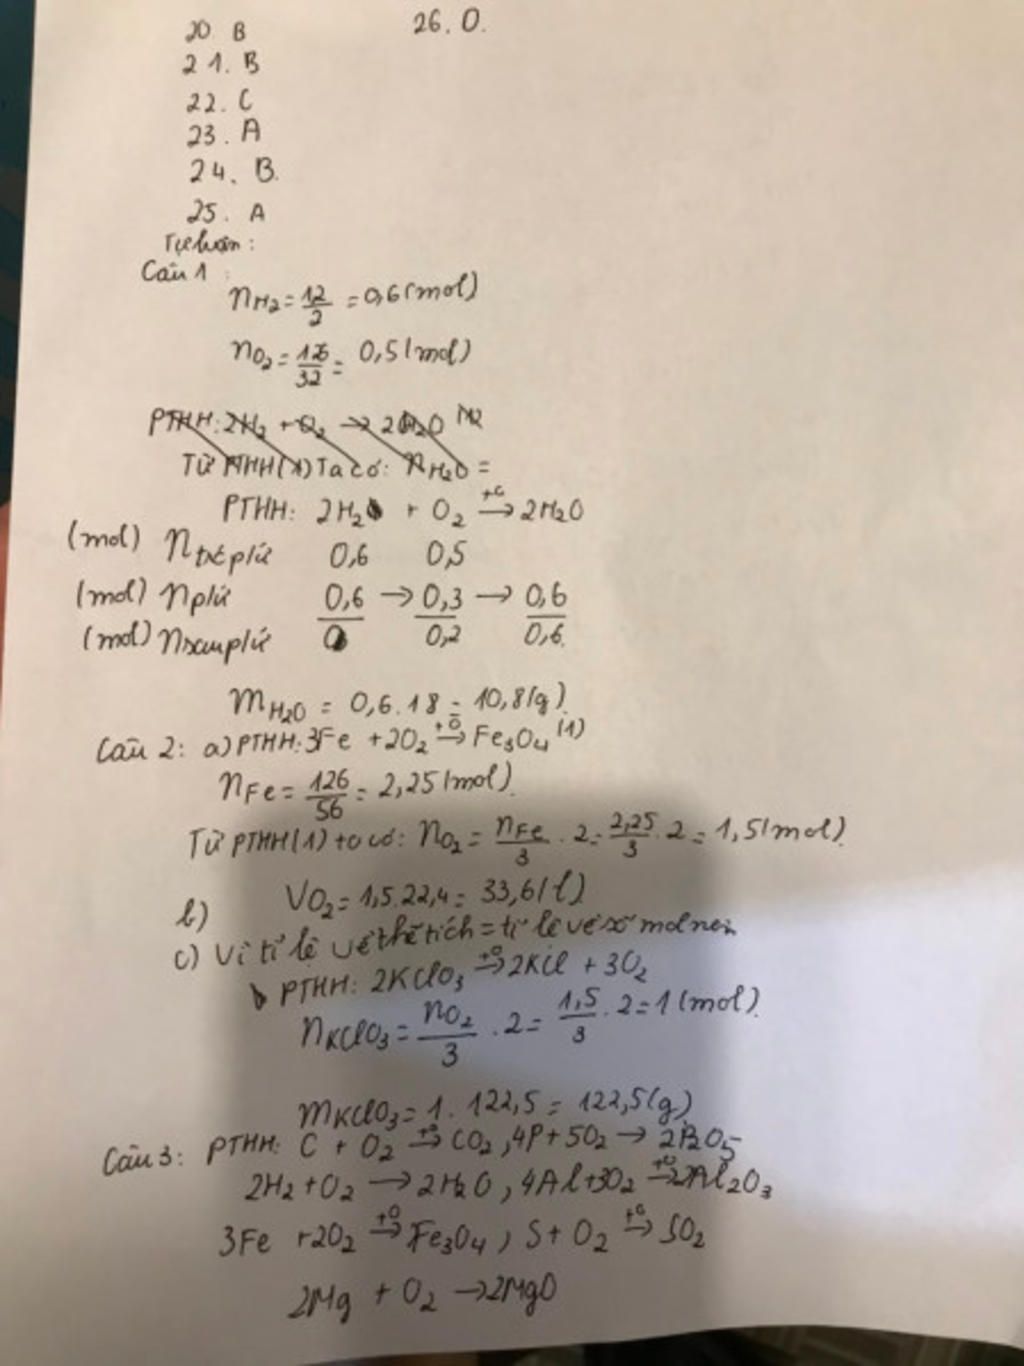 20 B
26. D.
21. B
22. C
23. A
24. B.
25. A
Tự luận:
Câu 1:
nH2 = 12/2 = 0,6 (mol)
nO2 = 126/32 = 0,5 (mol)
PTHH: 2H2 + O2 → 2H2O
Từ PTHH(1) Ta có: nH2O =
PTHH: 2H2 + O2 →(t°) 2H2O
(mol) n trc p/ứ 0,6 0,5
(mol) n p/ứ 0,6 → 0,3 → 0,6
(mol) n sau p/ứ 0 0,2 0,6.
mH2O = 0,6.18 = 10,8 (g)
Câu 2: a) PTHH: 3Fe + 2O2 →(t°) Fe3O4 (1)
nFe = 126/56 = 2,25 (mol).
Từ PTHH(1) ta có: nO2 = nFe/3 . 2 = 2,25/3 . 2 = 1,5 (mol).
b) VO2 = 1,5.22,4 = 33,6 (l)
c) Vì tỉ lệ về thể tích = tỉ lệ về số mol nên
PTHH: 2KClO3 →(t°) 2KCl + 3O2
nKClO3 = nO2/3 . 2 = 1,5/3 . 2 = 1 (mol).
mKClO3 = 1. 122,5 = 122,5 (g)
Câu 3: PTHH: C + O2 →(t°) CO2, 4P + 5O2 → 2P2O5
2H2 + O2 → 2H2O, 4Al + 3O2 →(t°) 2Al2O3
3Fe + 2O2 →(t°) Fe3O4, S + O2 →(t°) SO2
2Mg + O2 → 2MgO